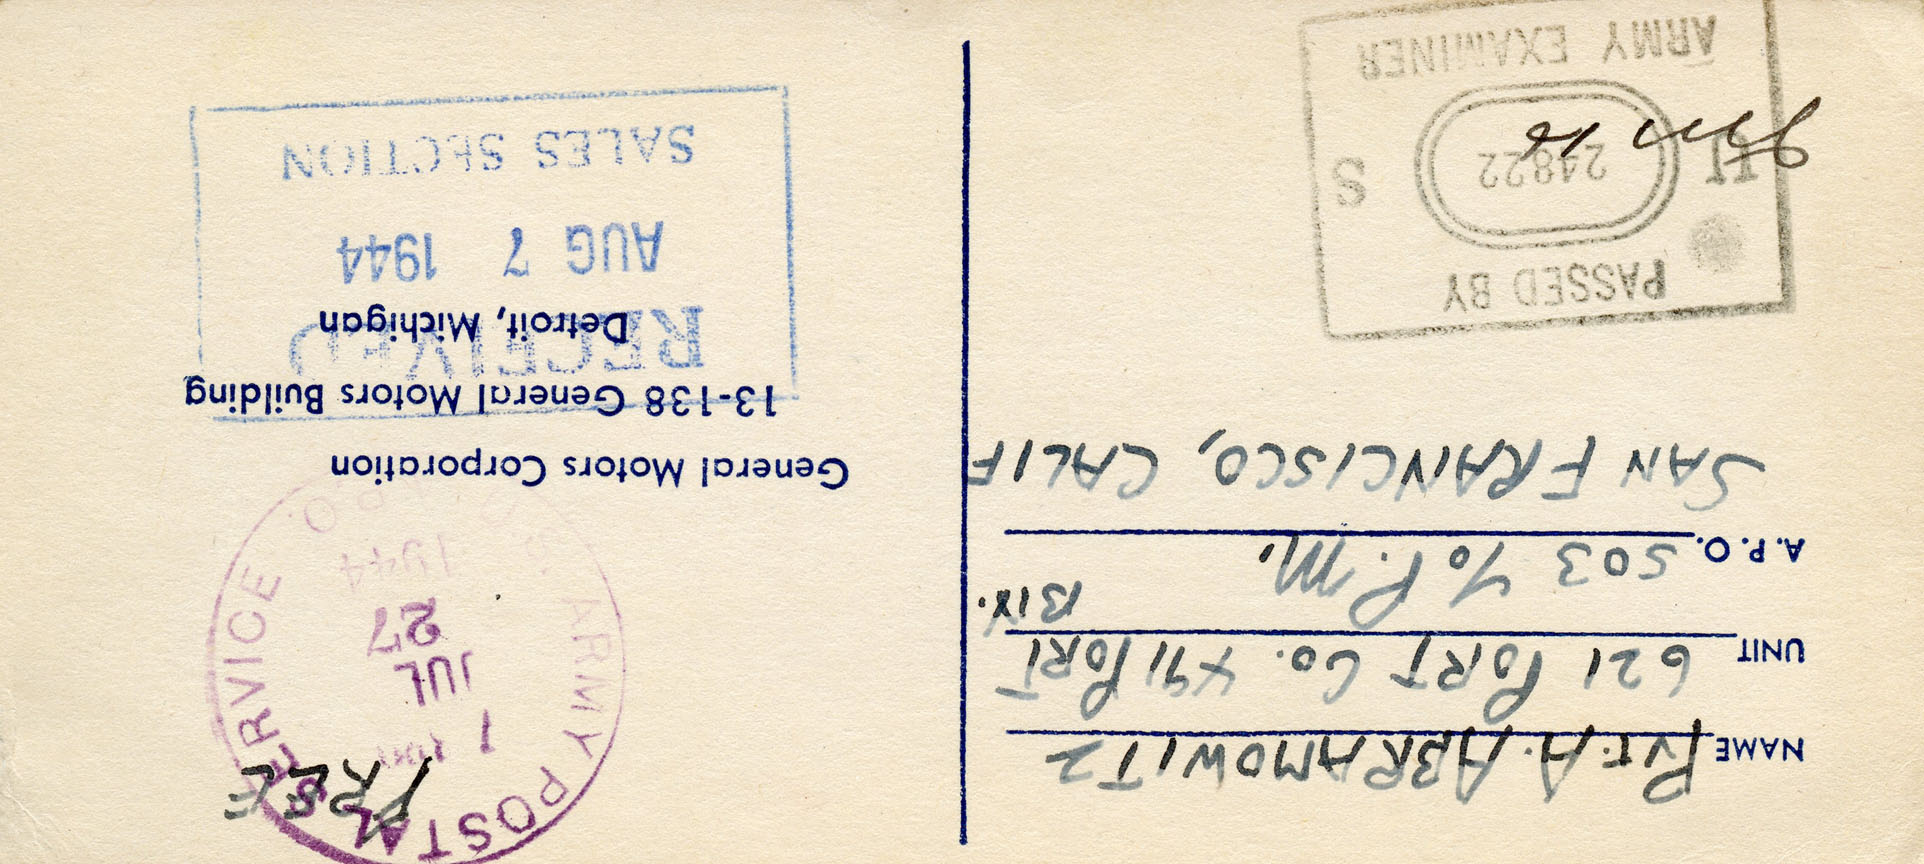 NAME Pvt. A. ABRAMOWITZ
UNIT 621 PORT Co. X 91 PORT
DIV.
A.P.O. 503 % P.M.
SAN FRANCISCO, CALIF
PASSED BY
U 24822 S
ARMY EXAMINER
FREE
ARMY POSTAL SERVICE
1
JUL
27
1944
A.P.O.
General Motors Corporation
13-138 General Motors Building
Detroit, Michigan
RECEIVED
AUG 7 1944
SALES SECTION